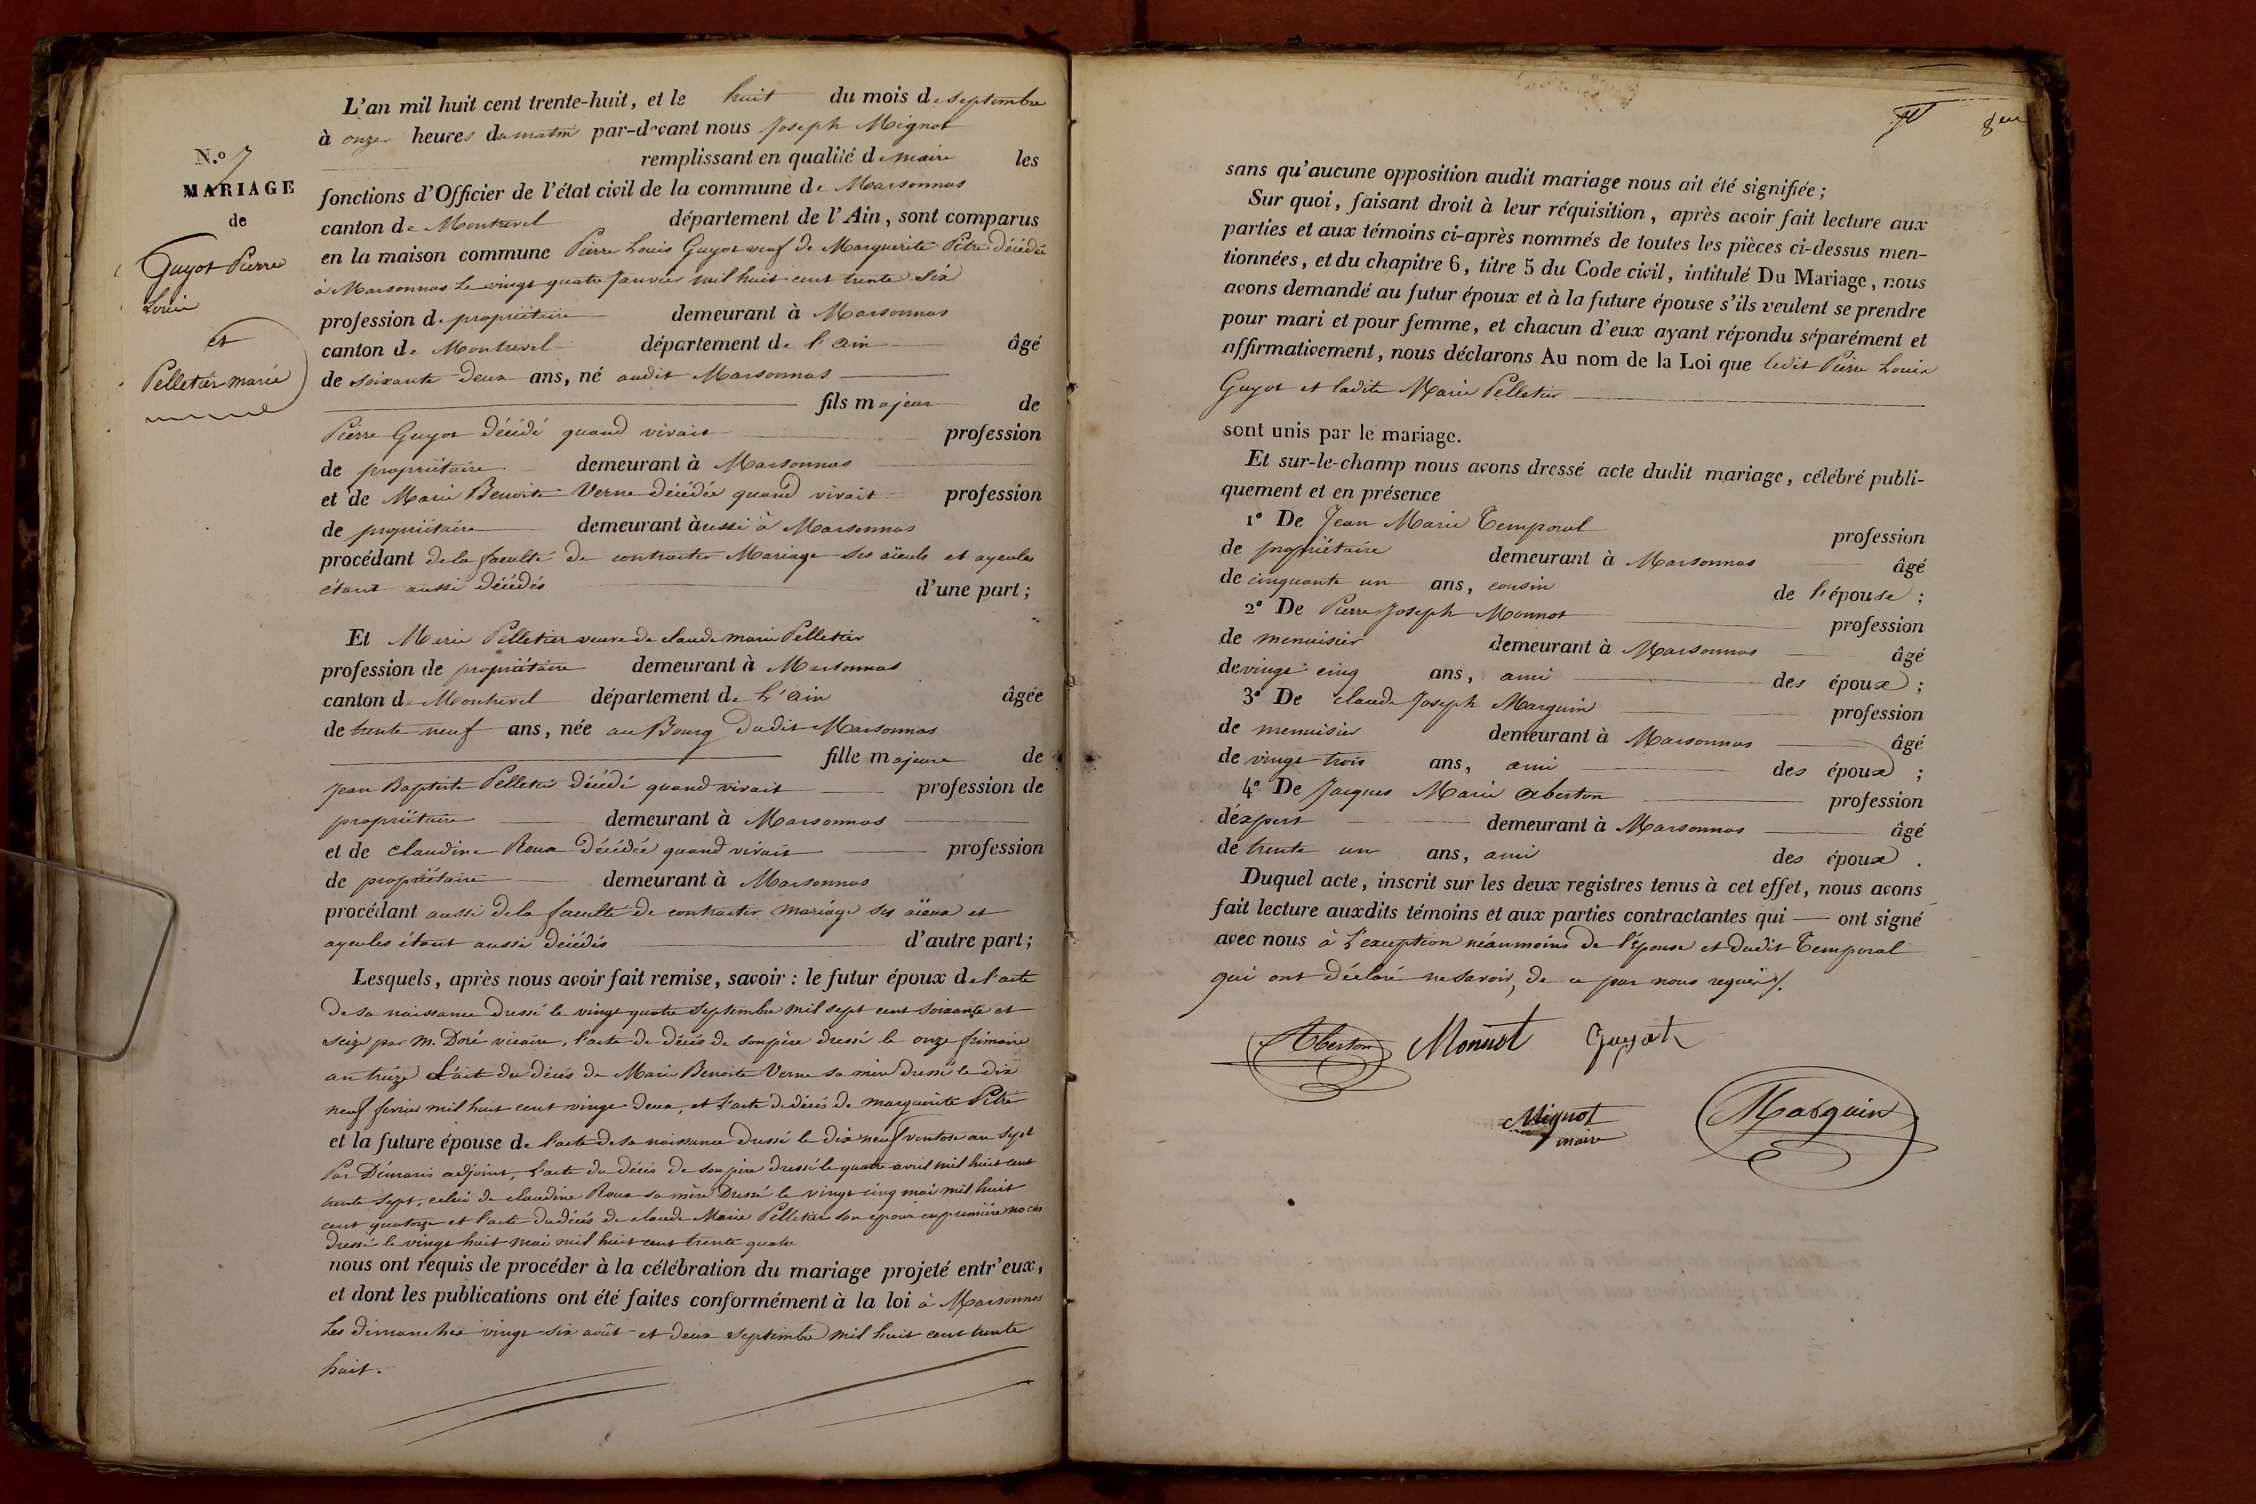 N.° 7
MARIAGE
de
Guyot Pierre
Louis
et
Pelletier marie
L'an mil huit cent trente-huit, et le huit du mois de septembre
à onze heures du matin par-devant nous Joseph Mignot
remplissant en qualité de maire les
fonctions d'Officier de l'état civil de la commune de Marsonnas
canton de Montrevel département de l'Ain, sont comparus
en la maison commune Pierre Louis Guyot veuf de Marguerite Pitre décédée
à Marsonnas le vingt quatre Janvier mil huit cent trente six
profession de propriétaire demeurant à Marsonnas
canton de Montrevel département de l'ain âgé
de soixante deux ans, né audit Marsonnas
fils majeur de
Pierre Guyot décédé quand vivait profession
de propriétaire demeurant à Marsonnas
et de Marie Benoite Verne décédée quand vivait profession
de propriétaire demeurant aussi à Marsonnas
procédant de la faculté de contracter Mariage ses aïeuls et ayeules
étant aussi décédés d'une part;
Et Marie Pelletier veuve de claude marie Pelletier
profession de propriétaire demeurant à Marsonnas
canton de Montrevel département de L'ain âgée
de trente neuf ans, née au Bourg dudit Marsonnas
fille majeure de
Jean Baptiste Pelletier décédé quand vivait profession de
propriétaire demeurant à Marsonnas
et de claudine Roux décédée quand vivait profession
de propriétaire demeurant à Marsonnas
procédant aussi de la faculté de contracter mariage ses aïeux et
ayeules étant aussi décédés d'autre part;
Lesquels, après nous avoir fait remise, savoir : le futur époux de l'acte
de sa naissance dressé le vingt quatre septembre mil sept cent soixante et
seize par M. Doré vicaire, l'acte de décès de son père dressé le onze frimaire
an treize L'acte du décès de Marie Benoite Verne sa mère dressé le dix
neuf fevrier mil huit cent vingt deux, et l'acte de décès de marguerite Pitre
et la future épouse de l'acte de sa naissance dressé le dix neuf ventose an sept
Par Démaris adjoint, l'acte du décès de son père dressé le quatre avril mil huit cent
trente sept, celui de claudine Roux sa mère Dressé le vingt cinq mai mil huit
cent quatorze et l'acte du décès de claude Marie Pelletier son époux en premiere noces
dressé le vingt huit mai mil huit cent trente quatre
nous ont requis de procéder à la célébration du mariage projeté entr'eux,
et dont les publications ont été faites conformément à la loi à Marsonnas
Les dimanches vingt-six août et deux septembre mil huit cent trente
huit.
sans qu'aucune opposition audit mariage nous ait été signifiée;
Sur quoi, faisant droit à leur réquisition, après avoir fait lecture aux
parties et aux témoins ci-après nommés de toutes les pièces ci-dessus men-
tionnées, et du chapitre 6, titre 5 du Code civil, intitulé Du Mariage, nous
avons demandé au futur époux et à la future épouse s'ils veulent se prendre
pour mari et pour femme, et chacun d'eux ayant répondu séparément et
affirmativement, nous déclarons Au nom de la Loi que ledit Pierre Louis
Guyot et ladite Marie Pelletier
sont unis par le mariage.
Et sur-le-champ nous avons dressé acte dudit mariage, célébré publi-
quement et en présence
1° De Jean Marie Temporal profession
de propriétaire demeurant à Marsonnas âgé
de cinquante un ans, cousin de l'épouse;
2° De Pierre Joseph Monnot profession
de menuisier demeurant à Marsonnas âgé
de vingt cinq ans, ami des époux;
3° De claude Joseph Marguin profession
de menuisier demeurant à Marsonnas âgé
de vingt trois ans, ami des époux;
4° De Jacques Marie Aberton profession
d'éxpert demeurant à Marsonnas âgé
de trente un ans, ami des époux.
Duquel acte, inscrit sur les deux registres tenus à cet effet, nous avons
fait lecture auxdits témoins et aux parties contractantes qui ont signé
avec nous à L'exception néanmoins de l'épouse et dudit Temporal
qui ont déclaré ne savoir, de ce par nous requis.
Aberton Monnot Guyot
Mignot
maire
Marguin